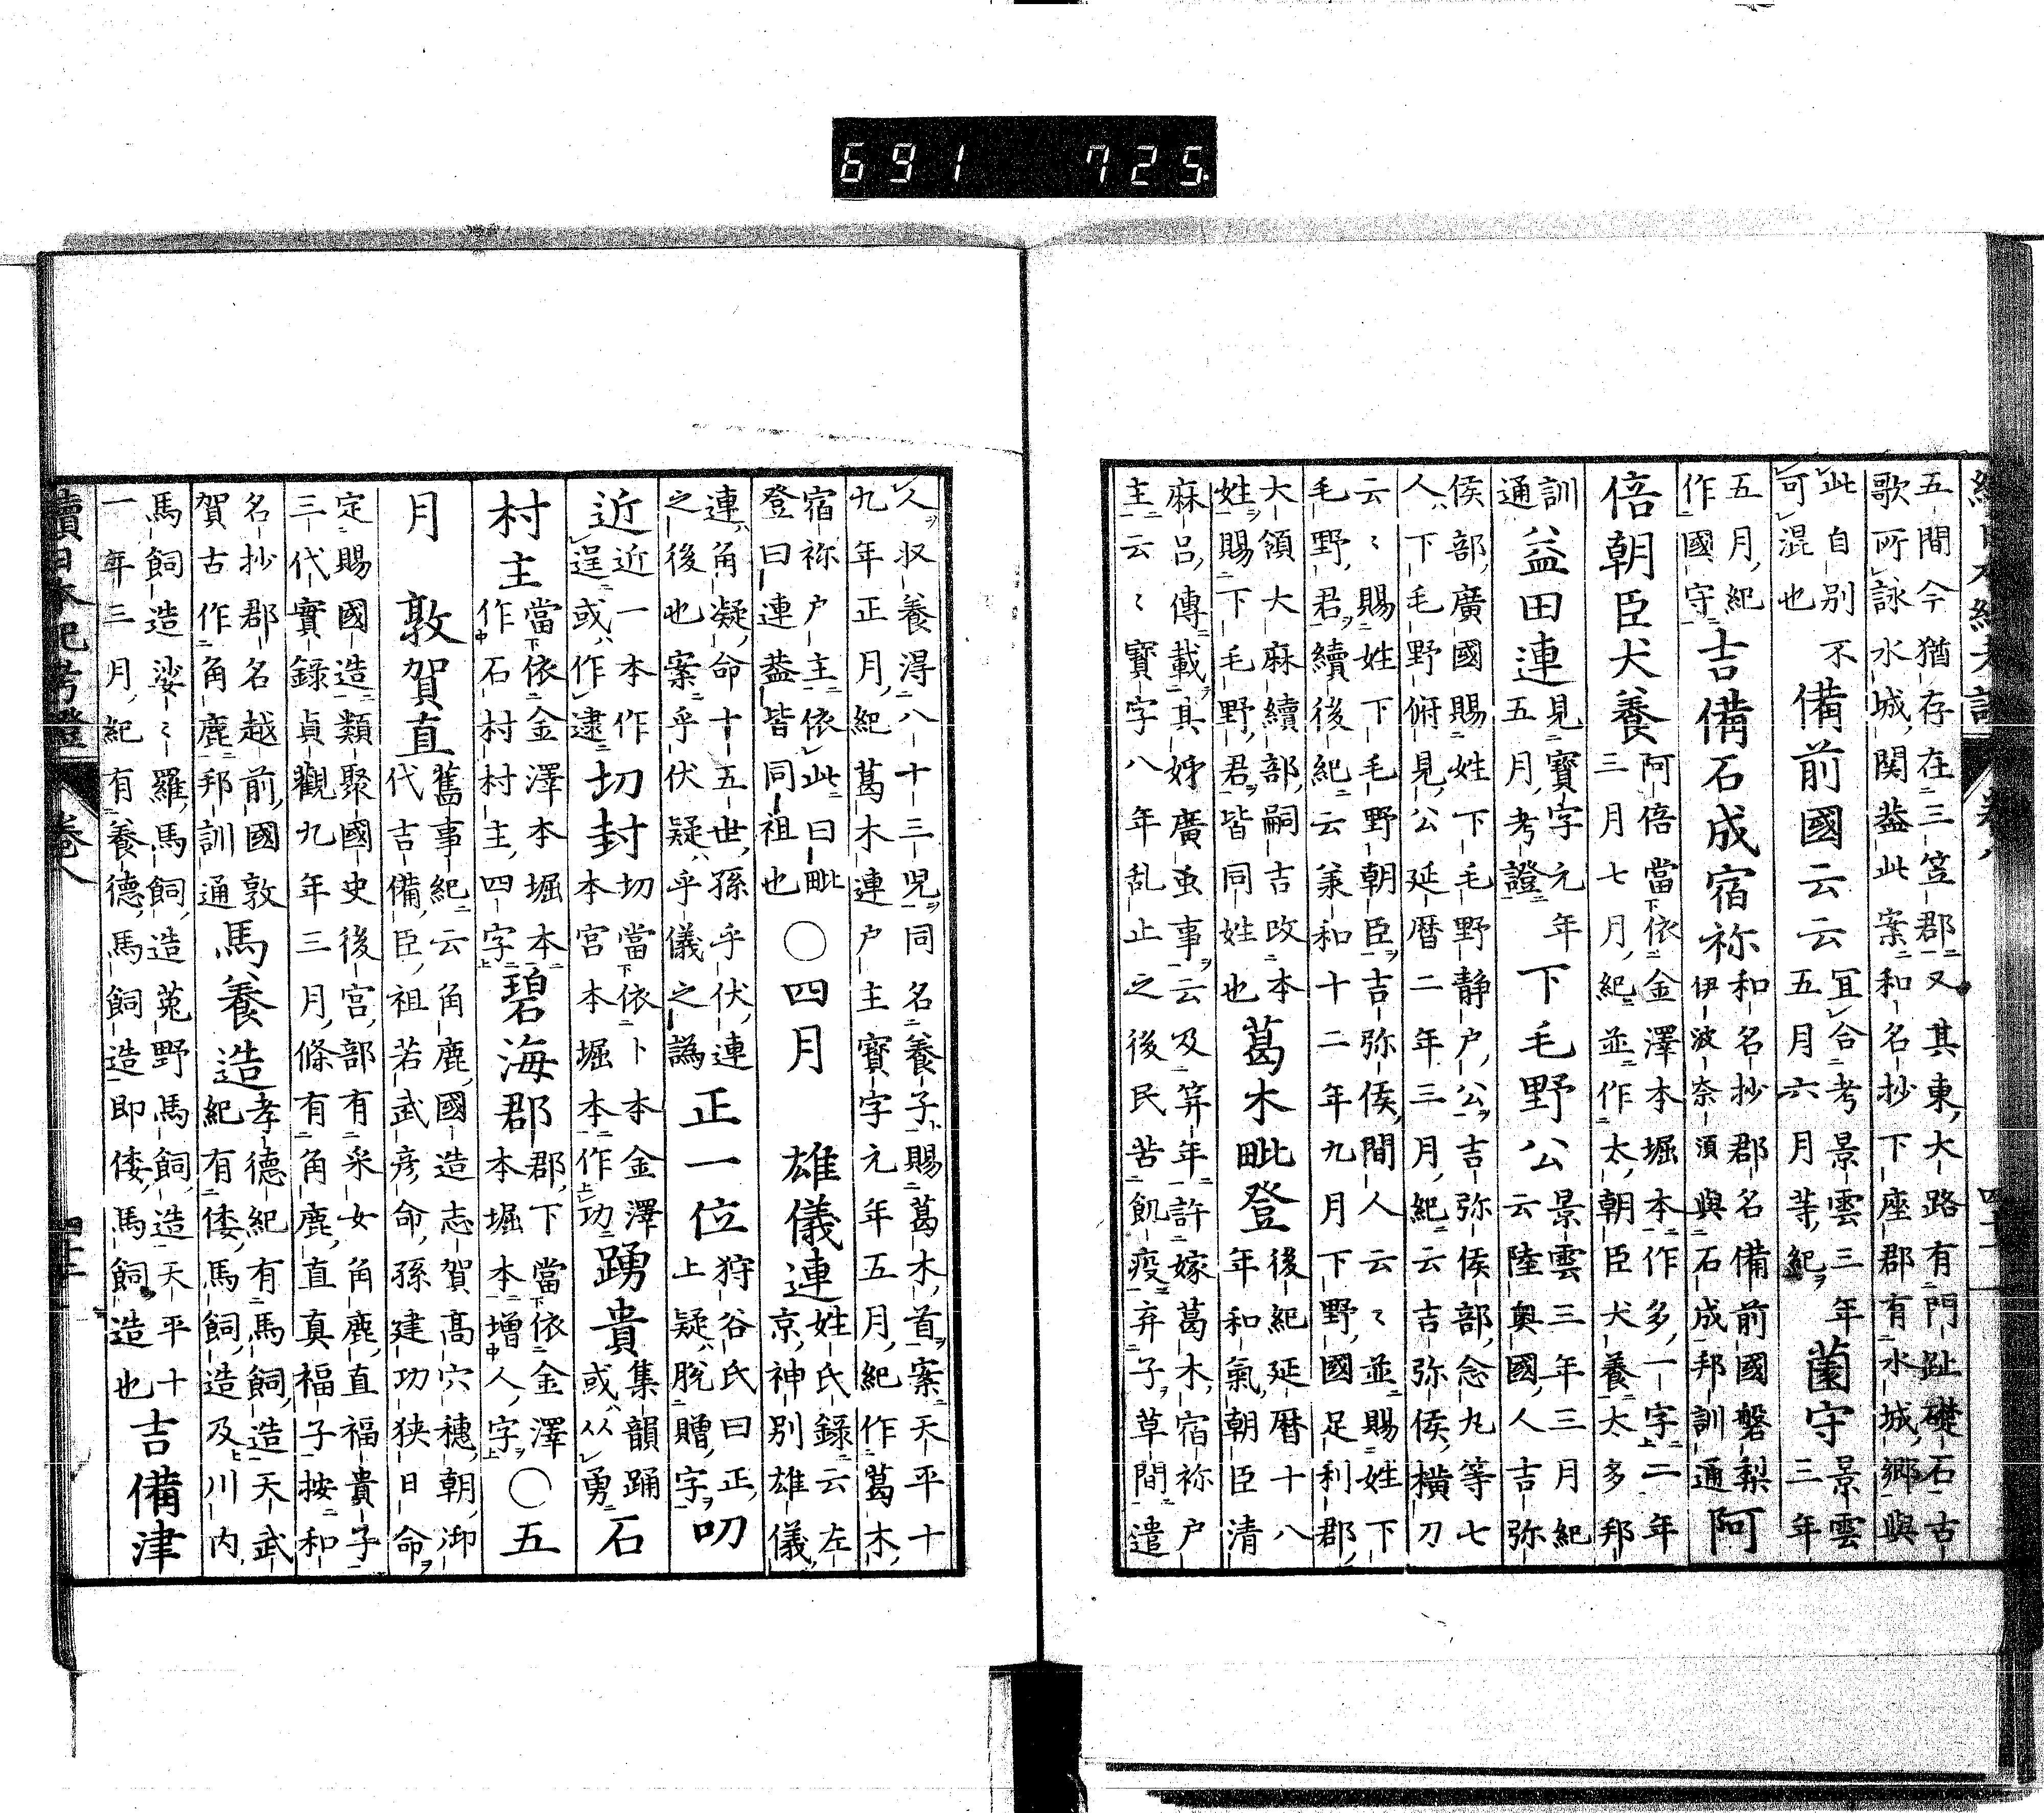 691 725
五間今猶存在三笠郡又其東大路有門趾礎石古
歌所詠水城関蓋此案和名抄下座郡有水城郷與
此自別不
可混也
備前國云云
宜合考景雲三年
五月六月等紀
薗守
景雲
三年
五月紀
作國守
吉備石成宿祢
和名抄郡名備前國磐梨
伊波奈須與石成邦訓通
阿
倍朝臣犬養
阿倍當依金澤本堀本作多一字二年
三月七月紀並作太朝臣犬養太多邦
訓
通
益田連
見寶字元年
五月考證
下毛野公
景雲三年三月紀
云陸奥國人吉弥
侯部廣國賜姓下毛野静戸公吉弥侯部念丸等七
人下毛野俯見公延暦二年三月紀云吉弥侯横刀
云〻賜姓下毛野朝臣吉弥侯間人云〻並賜姓下
毛野君續後紀云承和十二年九月下野國足利郡
大領大麻續部嗣吉改本
姓賜下毛野君皆同姓也
葛木毗登
後紀延暦十八
年和氣朝臣清
麻呂傳載其姉廣虫事云及笄年許嫁葛木宿祢戸
主云〻寶字八年乱止之後民苦飢疫弃子草間遣
人収養得八十三児同名養子賜葛木首案天平十
九年正月紀葛木連戸主寶字元年五月紀作葛木
宿祢戸主依此曰毗
登曰連蓋皆同祖也
○四月 雄儀連
姓氏録云左
京神別雄儀
連角凝命十五世孫乎伏連
之後也案乎伏疑乎儀之譌
正一位
狩谷氏曰正
上疑脱贈字
叨
近
近一本作
逞或作逮
切封
切當依卜本金澤
本宮本堀本作功
踴貴
集韻踊
或从勇
石
村主
當依金澤本堀本
作石村村主四字
碧海郡
郡下當依金澤
本堀本増人字
○五
月 敦賀直
舊事紀云角鹿國造志賀髙穴穂朝御
代吉備臣祖若武彦命孫建功狭日命
定賜國造類聚國史後宮部有采女角鹿直福貴子
三代實録貞觀九年三月條有角鹿直真福子按和
名抄郡名越前國敦
賀古作角鹿邦訓通
馬養造
孝德紀有馬飼造天武
紀有倭馬飼造及川内
馬飼造娑〻羅馬飼造菟野馬飼造天平十
一年三月紀有養德馬飼造即倭馬飼造也
吉備津
續日本紀考證 卷八